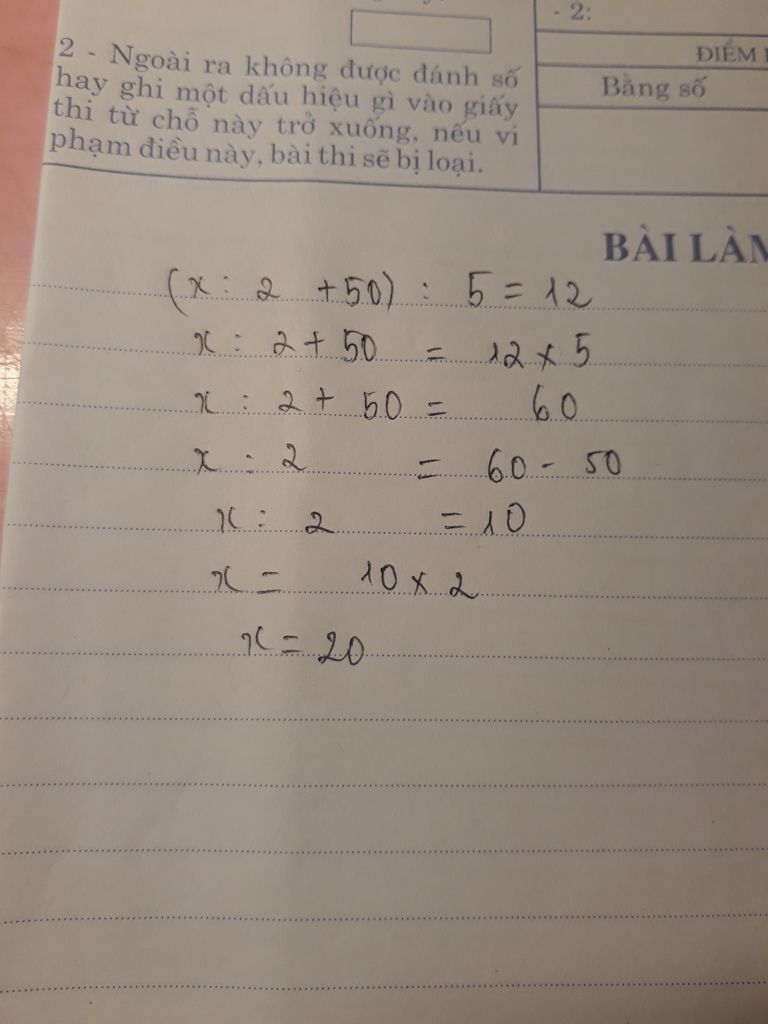 - 2:
2 - Ngoài ra không được đánh số
hay ghi một dấu hiệu gì vào giấy
thi từ chỗ này trở xuống, nếu vi
phạm điều này, bài thi sẽ bị loại.
ĐIỂM
Bằng số
BÀI LÀM
(x : 2 + 50) : 5 = 12
x : 2 + 50 = 12 x 5
x : 2 + 50 = 60
x : 2 = 60 - 50
x : 2 = 10
x = 10 x 2
x = 20